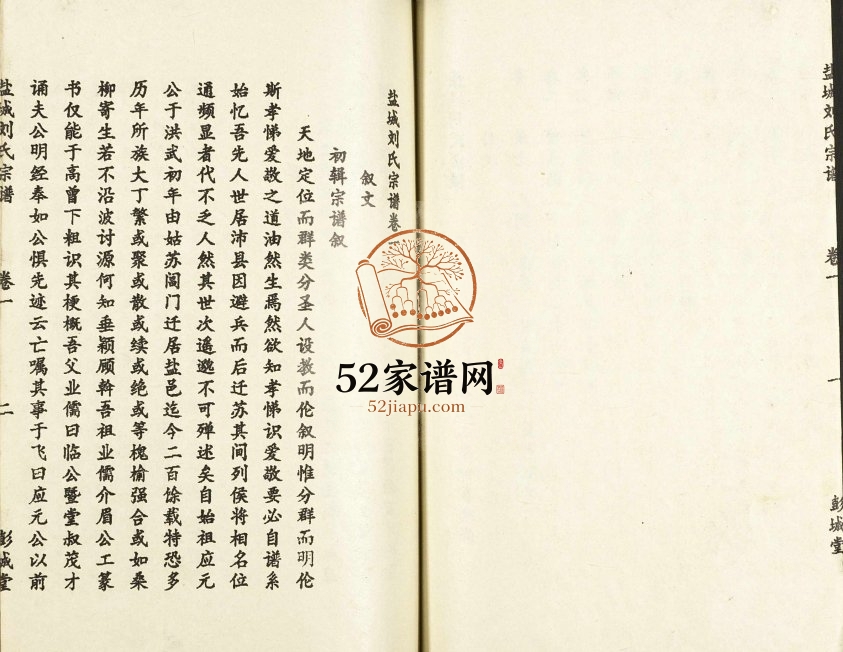 盐城刘氏宗谱
卷一
一
彭城堂
盐城刘氏宗谱卷
叙文
初辑宗谱叙
天地定位而群类分圣人设教而伦叙明惟分群而明伦
斯孝悌爱敬之道油然生焉然欲知孝悌识爱敬要必自谱系
始忆吾先人世居沛县因避兵而后迁苏其间列侯将相名位
通频显者代不乏人然其世次遥邈不可殚述矣自始祖应元
公于洪武初年由姑苏阊门迁居盐邑迄今二百馀载特恐多
历年所族大丁繁或聚或散或续或绝或等槐榆强合或如桑
柳寄生若不沿波讨源何知垂颖顾幹吾祖业儒介眉公工篆
书仅能于高曾下粗识其梗概吾父业儒曰临公暨堂叔茂才
诵夫公明经奉如公惧先迹云亡嘱其事于飞曰应元公以前
盐城刘氏宗谱
卷一
二
彭城堂
52家谱网
52jiapu.com